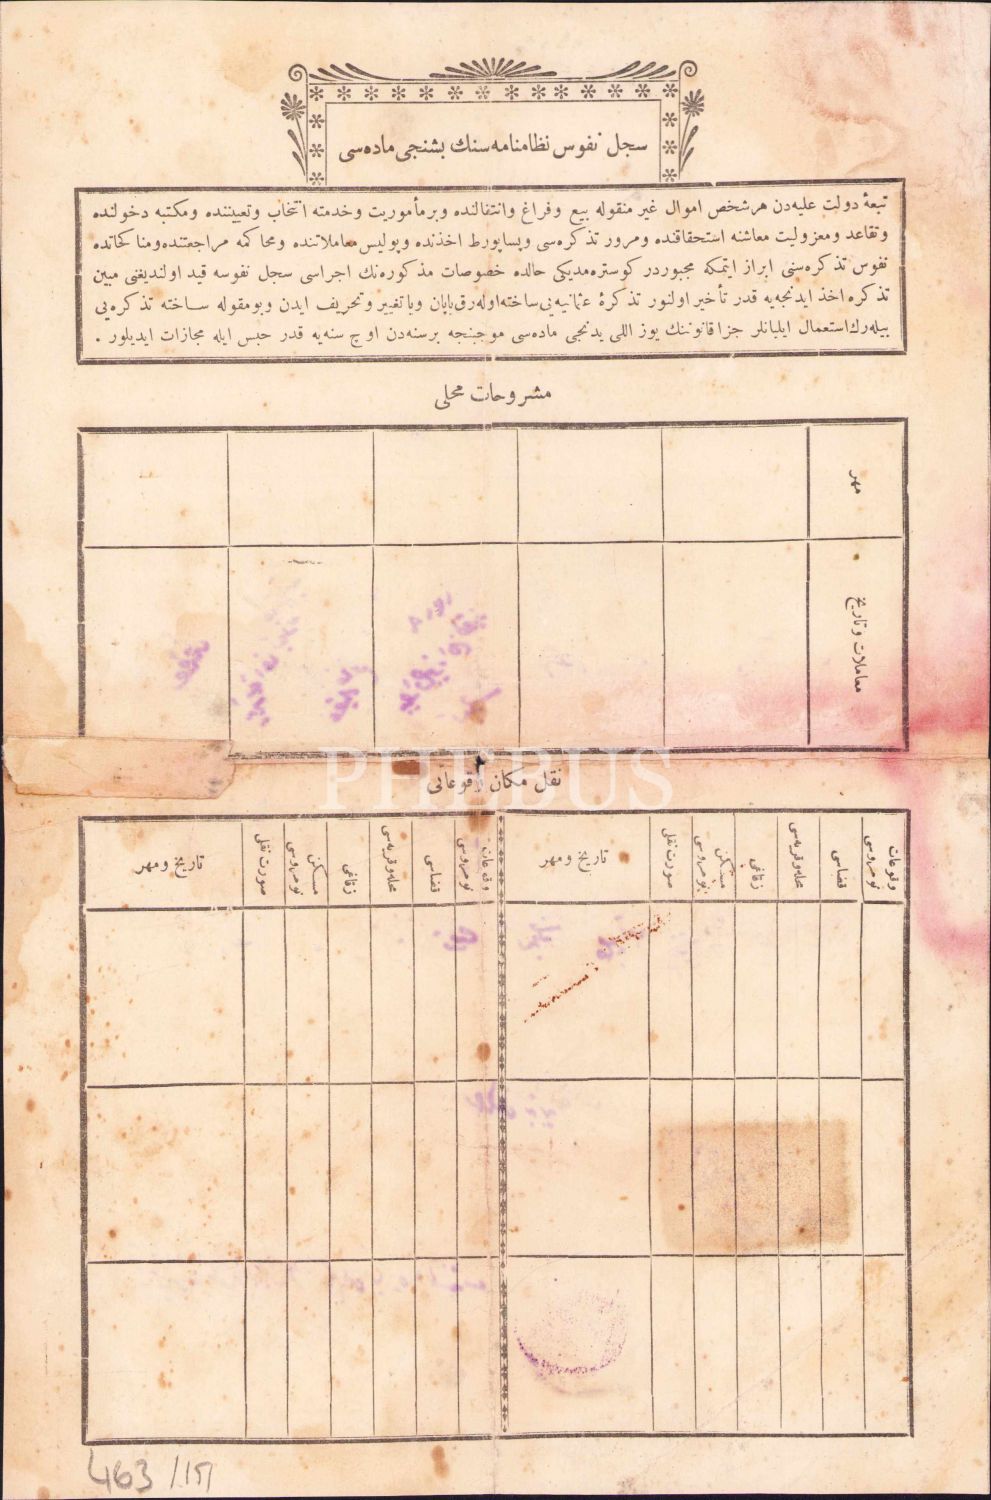 سجل نفوس نظامنامه سنك بشنجی ماده سی
تبعهٔ دولت علیه دن هر شخص اموال غیر منقوله بیع وفراغ وانتقالنده وبر مأموریت وخدمته انتخاب وتعییننده ومکتبه دخولنده
وتقاعد ومعزولیت معاشنه استحقاقنده ومرور تذکره سی وپساپورط اخذنده وپولیس معاملاتنده ومحاکمه مراجعتنده ومناکحاتده
نفوس تذکره سنی ابراز ایتمکه مجبوردر کوستره مدیکی حالده خصوصات مذکوره نك اجراسی سجل نفوسه قید اولندیغنی مبین
تذکره اخذ ایدنجه یه قدر تأخیر اولنور تذکرهٔ عثمانیه یی ساخته اوله رق یاپان ویا تغییر وتحریف ایدن وبو مقوله ساخته تذکره یی
بیله رك استعمال ایلیانلر جزا قانوننك یوز اللی یدنجی ماده سی موجبنجه برسنه دن اوچ سنه یه قدر حبس ایله مجازات ایدیلور .
مشروحات محلی
مهر
معاملات وتاریخ
PHEBUS
نقل مکان وقوعاتی
وقوعات نومروسی
قضاسی
محله وقریه سی
زقاغی
مسکن نومروسی
صورت نقلی
تاریخ ومهر
وقوعات نومروسی
قضاسی
محله وقریه سی
زقاغی
مسکن نومروسی
صورت نقلی
تاریخ ومهر
463